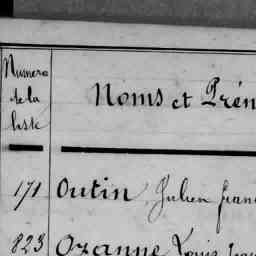 Numero
de la
liste
Noms et Prén
171 Outin Julien Fran
823 Ozanne Louis